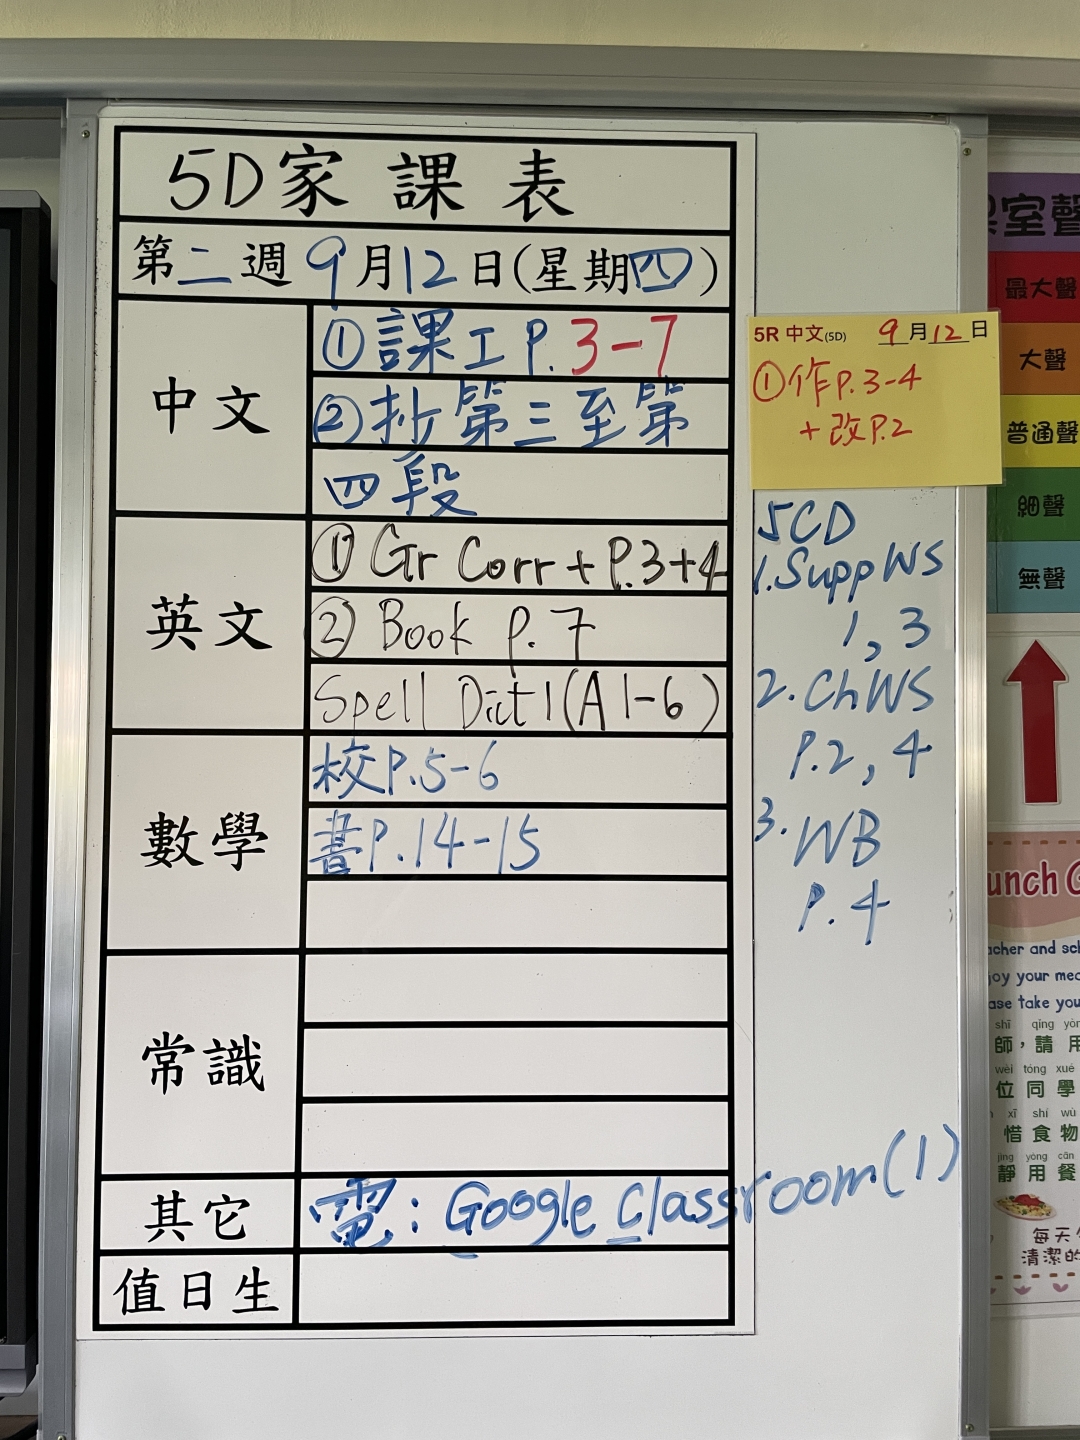 5D家課表
第二週 9月12日(星期四)
中文
①課工P.3-7
②抄第三至第
四段
英文
①Gr Corr + P.3+4
② Book P.7
Spell Dict 1(A1-6)
數學
校P.5-6
書P.14-15
常識
其它
電：Google Classroom(1)
值日生
5R 中文(5D) 9月12日
①作P.3-4
+改P.2
5CD
1.Supp WS
1,3
2.Ch WS
P.2,4
3.WB
P.4
室聲
最大聲
大聲
普通聲
細聲
無聲
unch G
acher and sch
joy your mea
ase take you
shī qǐng yòn
師，請用
wèi tóng xué
位同學
xī shí wù
惜食物
jìng yòng cān
靜用餐
每天
清潔的